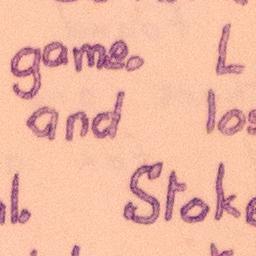 game. L
and los
l. Stoke